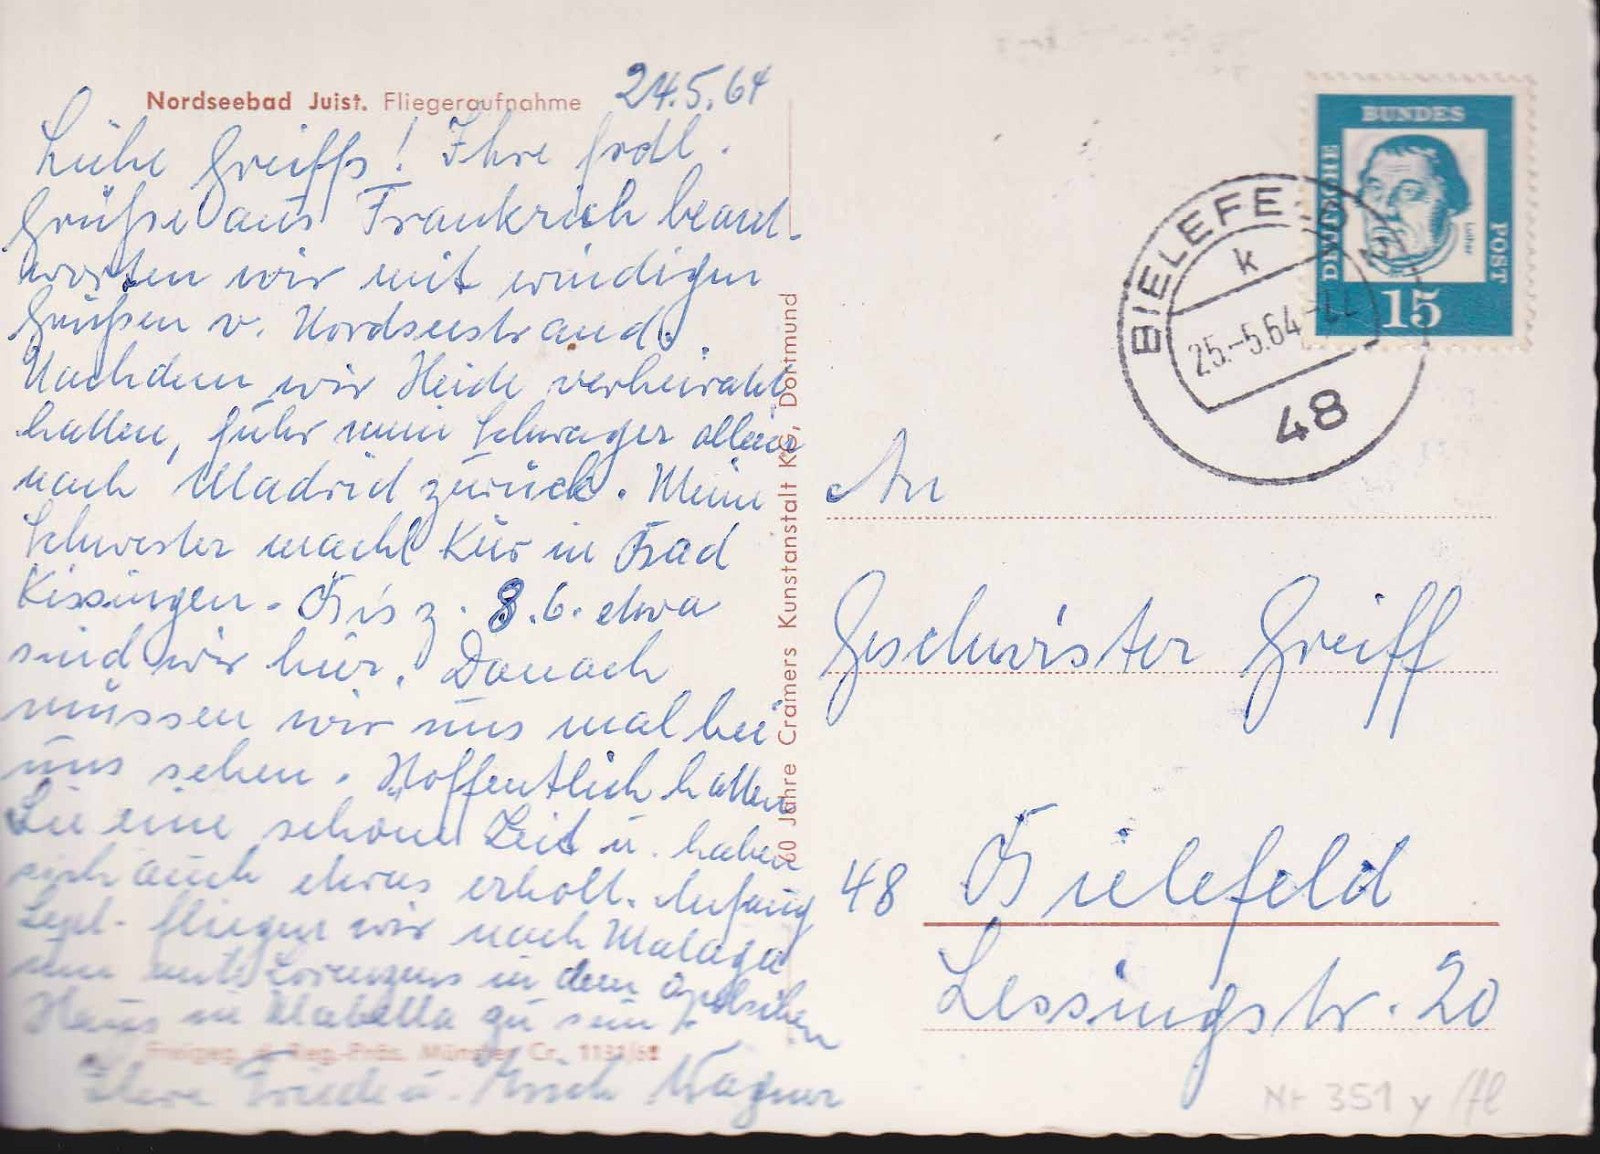 Nordseebad Juist. Fliegeraufnahme
24.5.64
Liebe Greiffs! Ihre frdl.
Grüße aus Frankreich beant-
worten wir mit windigen
Grüßen v. Nordseestrand.
Nachdem wir Heide verheiratet
hatten, fuhr mein Schwager allein
nach Madrid zurück. Meine
Schwester macht Kur in Bad
Kissingen. Bis z. 8.6. etwa
sind wir hier. Danach
müssen wir uns mal bei
uns sehen. Hoffentlich hatten
Sie eine schöne Zeit u. haben
sich auch etwas erholt. Anfang
Sept. fliegen wir nach Malaga
um mit Lorenzens in dem
Haus in zu sein.
Freigeg. d. Reg.-Präs. Münster Cr. 1131/62
Ihre Friede u. Erich Wagner
60 Jahre Cramers Kunstanstalt KG, Dortmund
DEUTSCHE
BUNDES
POST
Luther
15
BIELEFELD 2
k
25.-5.64
48
An
Geschwister Greiff
48 Bielefeld
Lessingstr. 20
Nr 351 y